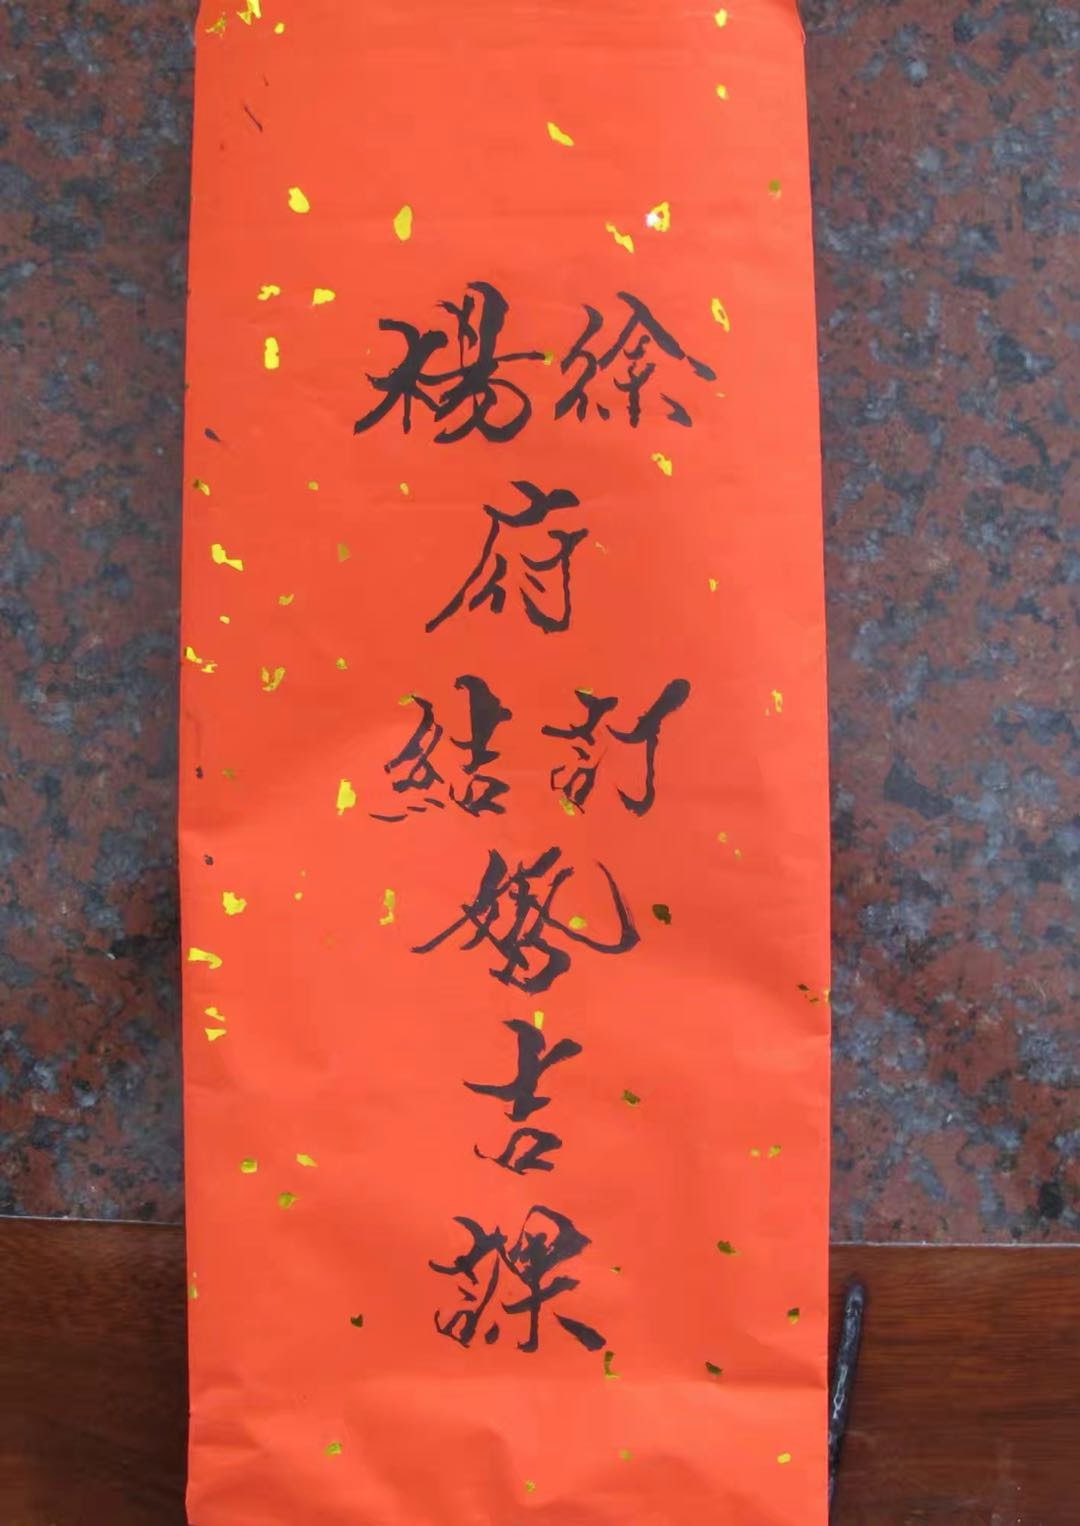 徐楊
府
訂結
婚
吉
課